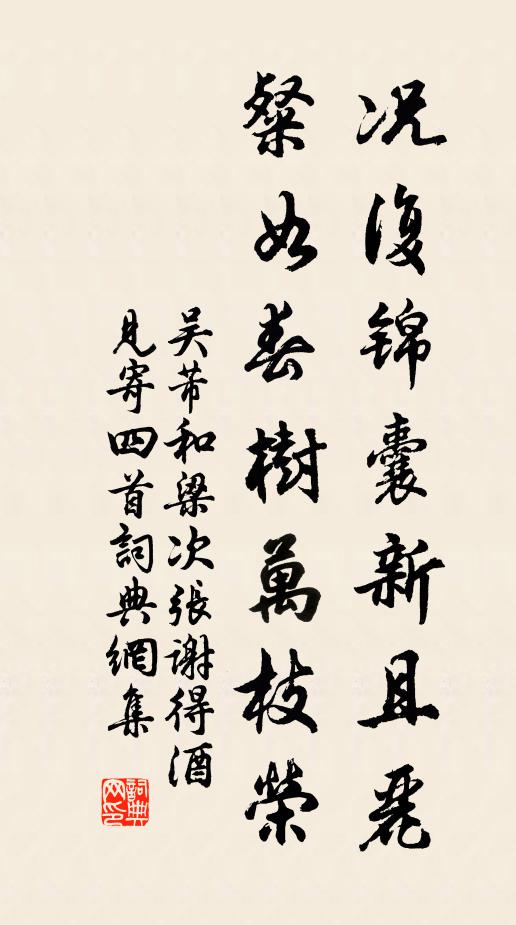 况復錦囊新且麗
粲如春樹萬枝榮
吴芾和梁次張謝得酒
見寄四首詞典網集
詞典網印